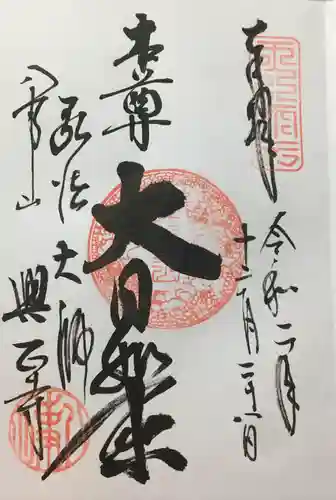 奉拝
令和二年
十二月二十一日
本尊
大日如来
弘法大師
八雲山
興正寺